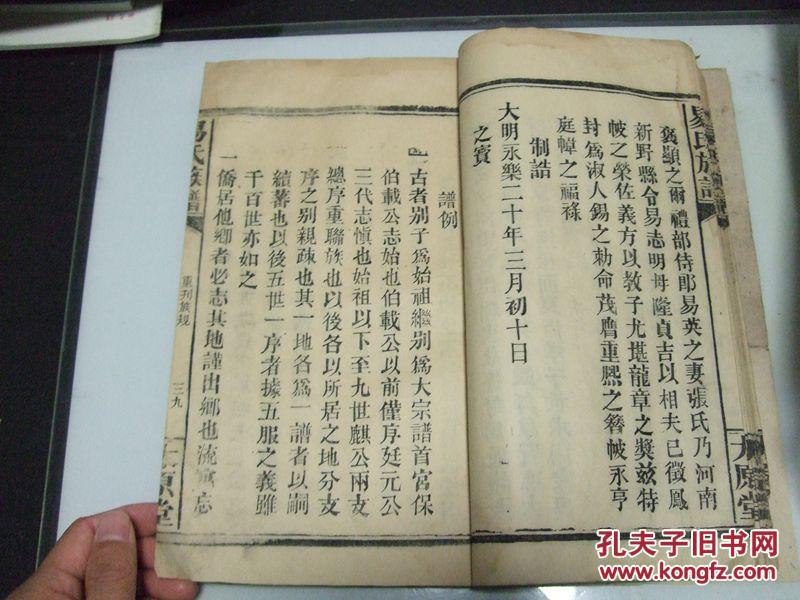 易氏族譜
褒顯之爾禮部侍郎易英之妻張氏乃河南
新野縣令易志明母隆貞吉以相夫已徵鳳
帔之榮佐義方以教子尤堪龍章之獎茲特
封為淑人錫之勅命茂膺重熙之簪帔永亨
庭幃之福祿
制誥
大明永樂二十年三月初十日
之寶
太原堂
譜例
一古者別子為始祖繼別為大宗譜首宮保
伯載公志始也伯載公以前僅序廷元公
三代志慎也始祖以下至九世麒公兩支
總序重聯族也以後各以所居之地分支
序之別親疎也其一地各為一譜者以嗣
續蕃也以後五世一序者據五服之義雖
千百世亦如之
一僑居他鄉者必志其地謹出鄉也流寓忘
易氏族譜
重刊族規
三九
太原堂
孔夫子旧书网
www.kongfz.com